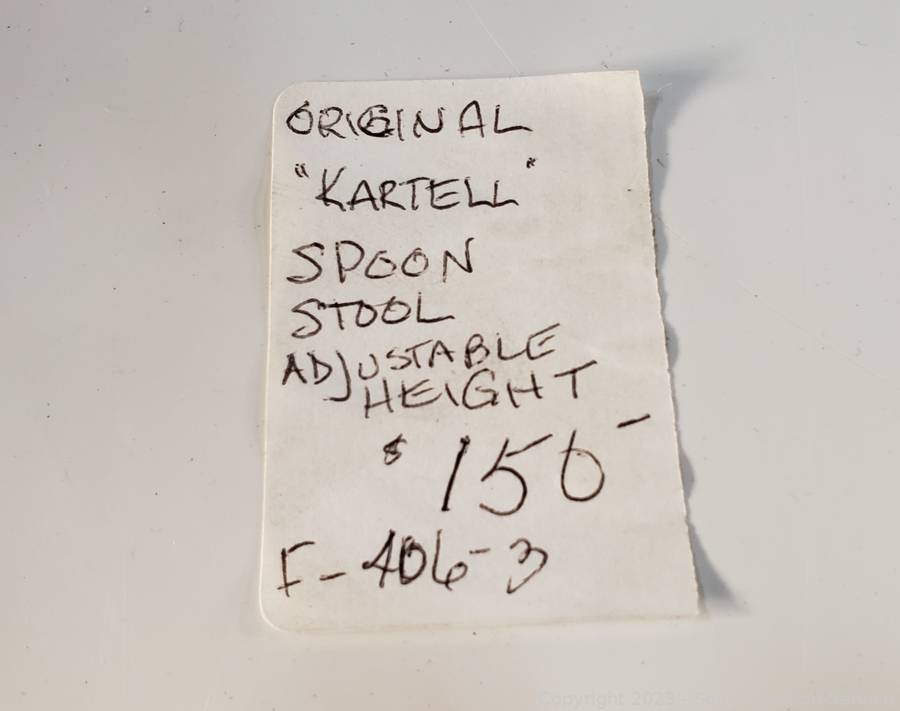 ORIGINAL
"KARTELL"
SPOON
STOOL
ADJUSTABLE
HEIGHT
$150-
F-406-3
Copyright 2023 -